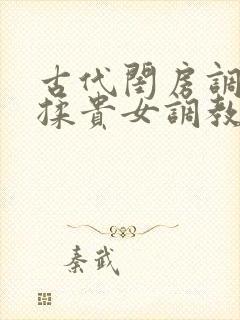 古代閨房調
採貴女調教
秦武